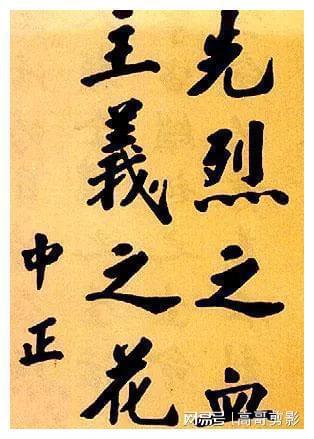 先烈之血
主義之花
中正
网易号 | 高哥剪影